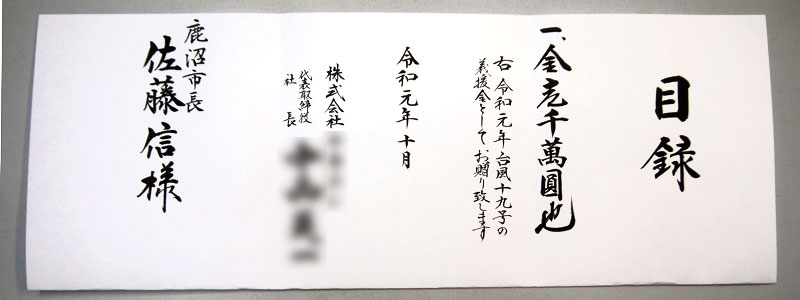 目録
一、金壱千萬圓也
右 令和元年台風十九号の
義援金としてお贈り致します
令和元年十月
株式会社
代表取締役
社長
鹿沼市長
佐藤信様